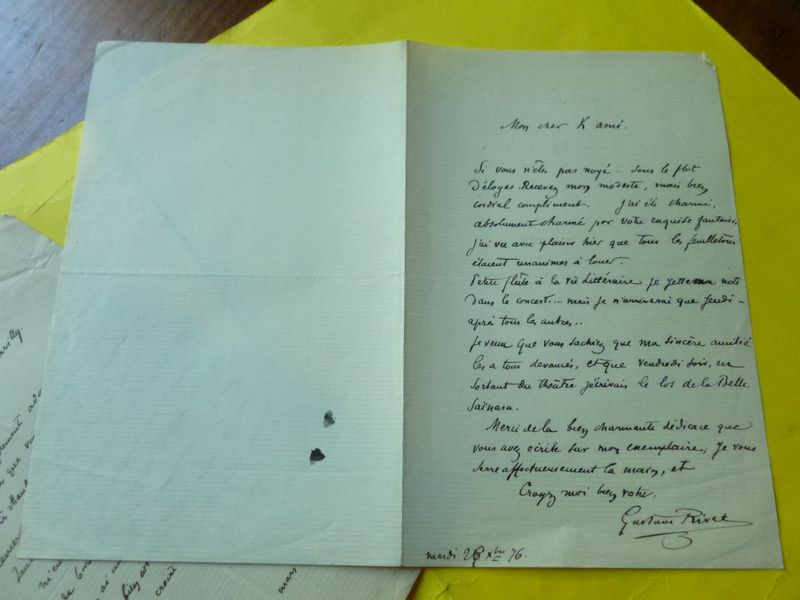 Mon cher K ami.
Si vous n'êtes pas noyé.. sous le flot
D'éloges. Recevez mon modeste, mais bien
cordial compliment. J'ai été charmé,
absolument charmé par votre exquise fantaisie.
J'ai vu avec plaisir hier que tous les feuilletons
étaient unanimes à louer.
Petite flûte à la vie Littéraire je jette ma note
dans le concert.... mais je n'arriverai que Jeudi-
après tous les autres..
Je veux que vous sachiez que ma sincère amitié
les a tous devancés, et que vendredi soir, en
sortant du théâtre j'écrivais le los de la Belle
Saïnara.
Merci de la bien charmante dédicace que
vous avez écrite sur mon exemplaire, Je vous
serre affectueusement la main, et
Croyez moi bien votre.
Gustave Rivet
mardi 26 Xbre 76.
que
mars
croire